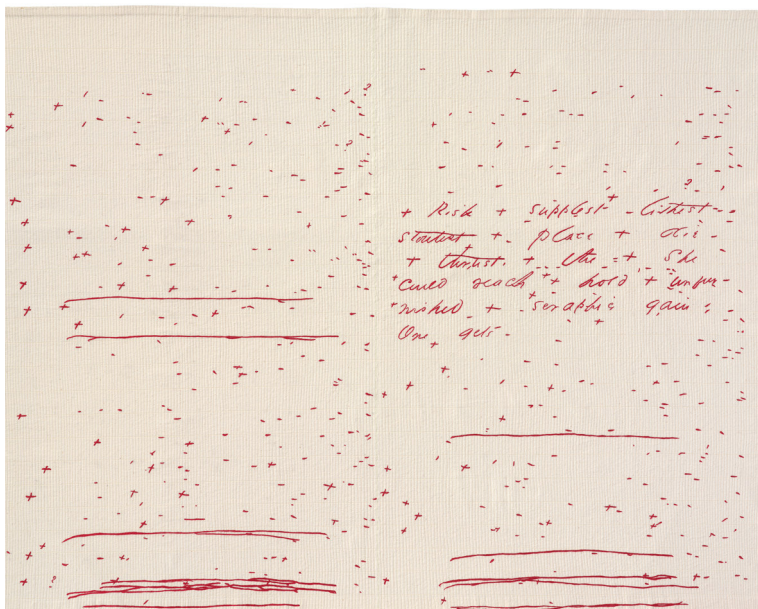 + Risk + supplest + lithest -
stoutest + place +
+ thrust. + the + She
could reach + + unfur-
nished + seraphic gain,
One gets -